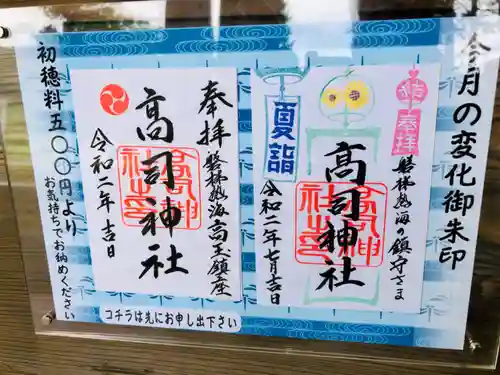 今月の変化御朱印
初穂料五〇〇円より
お気持ちでお納めください
奉拝
磐梯熱海の鎮守さま
高司神社
夏詣
令和二年七月吉日
奉拝
磐梯熱海高玉鎮座
高司神社
令和二年吉日
コチラは先にお申し出下さい